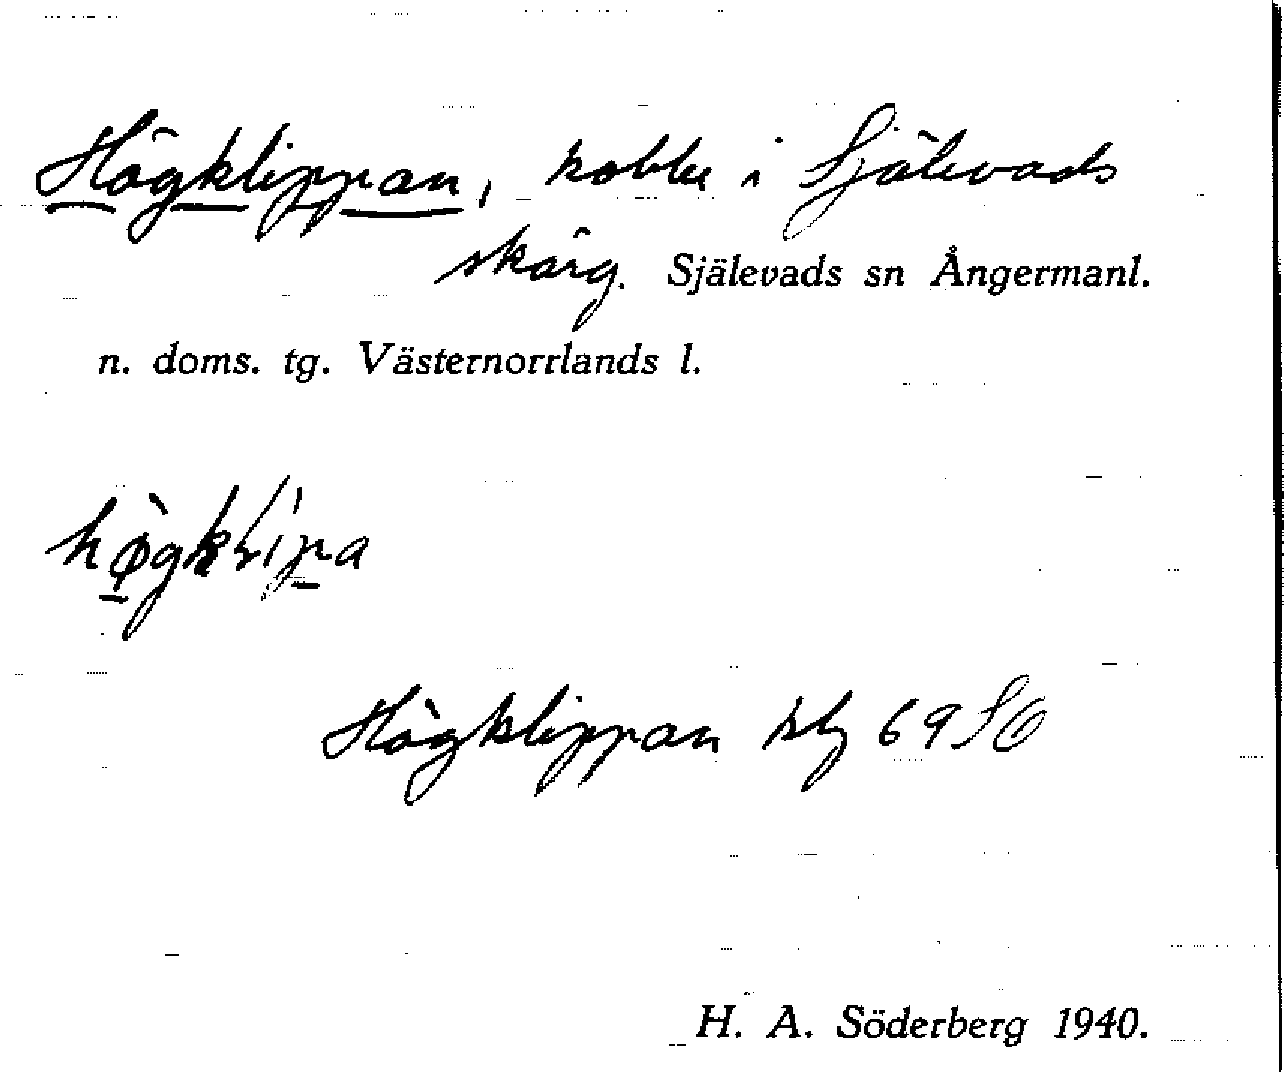 Högklippan, kobbe i Själevads
skärg. Själevads sn Ångermanl.
n. doms. tg. Västernorrlands l.
Högklippan kbl 69 SO
H. A. Söderberg 1940.